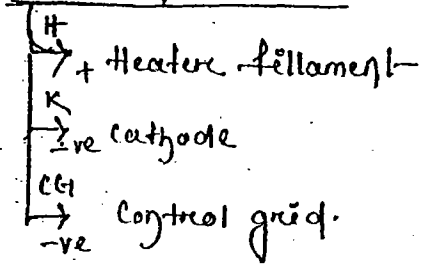 H
+ Heatere fillament
K
-ve cathode
CG
-ve Control grid.